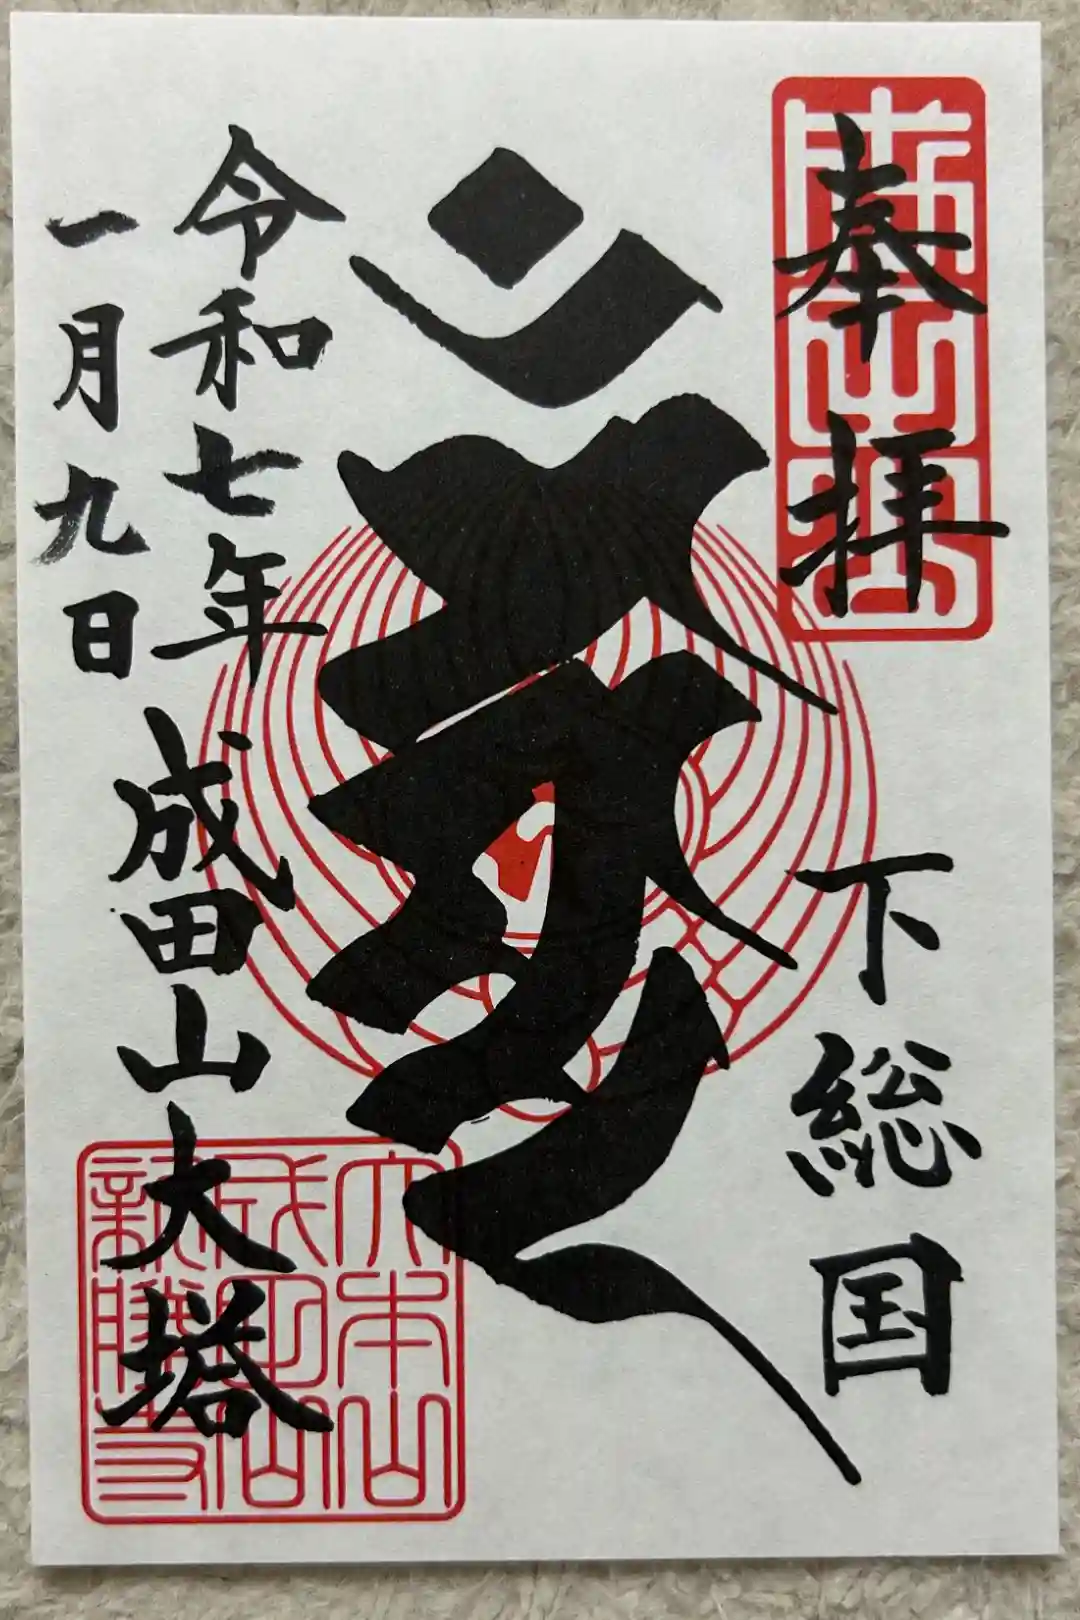 奉拝
成田山
下総国
令和七年
一月九日
成田山大塔
大本山
成田山
新勝寺